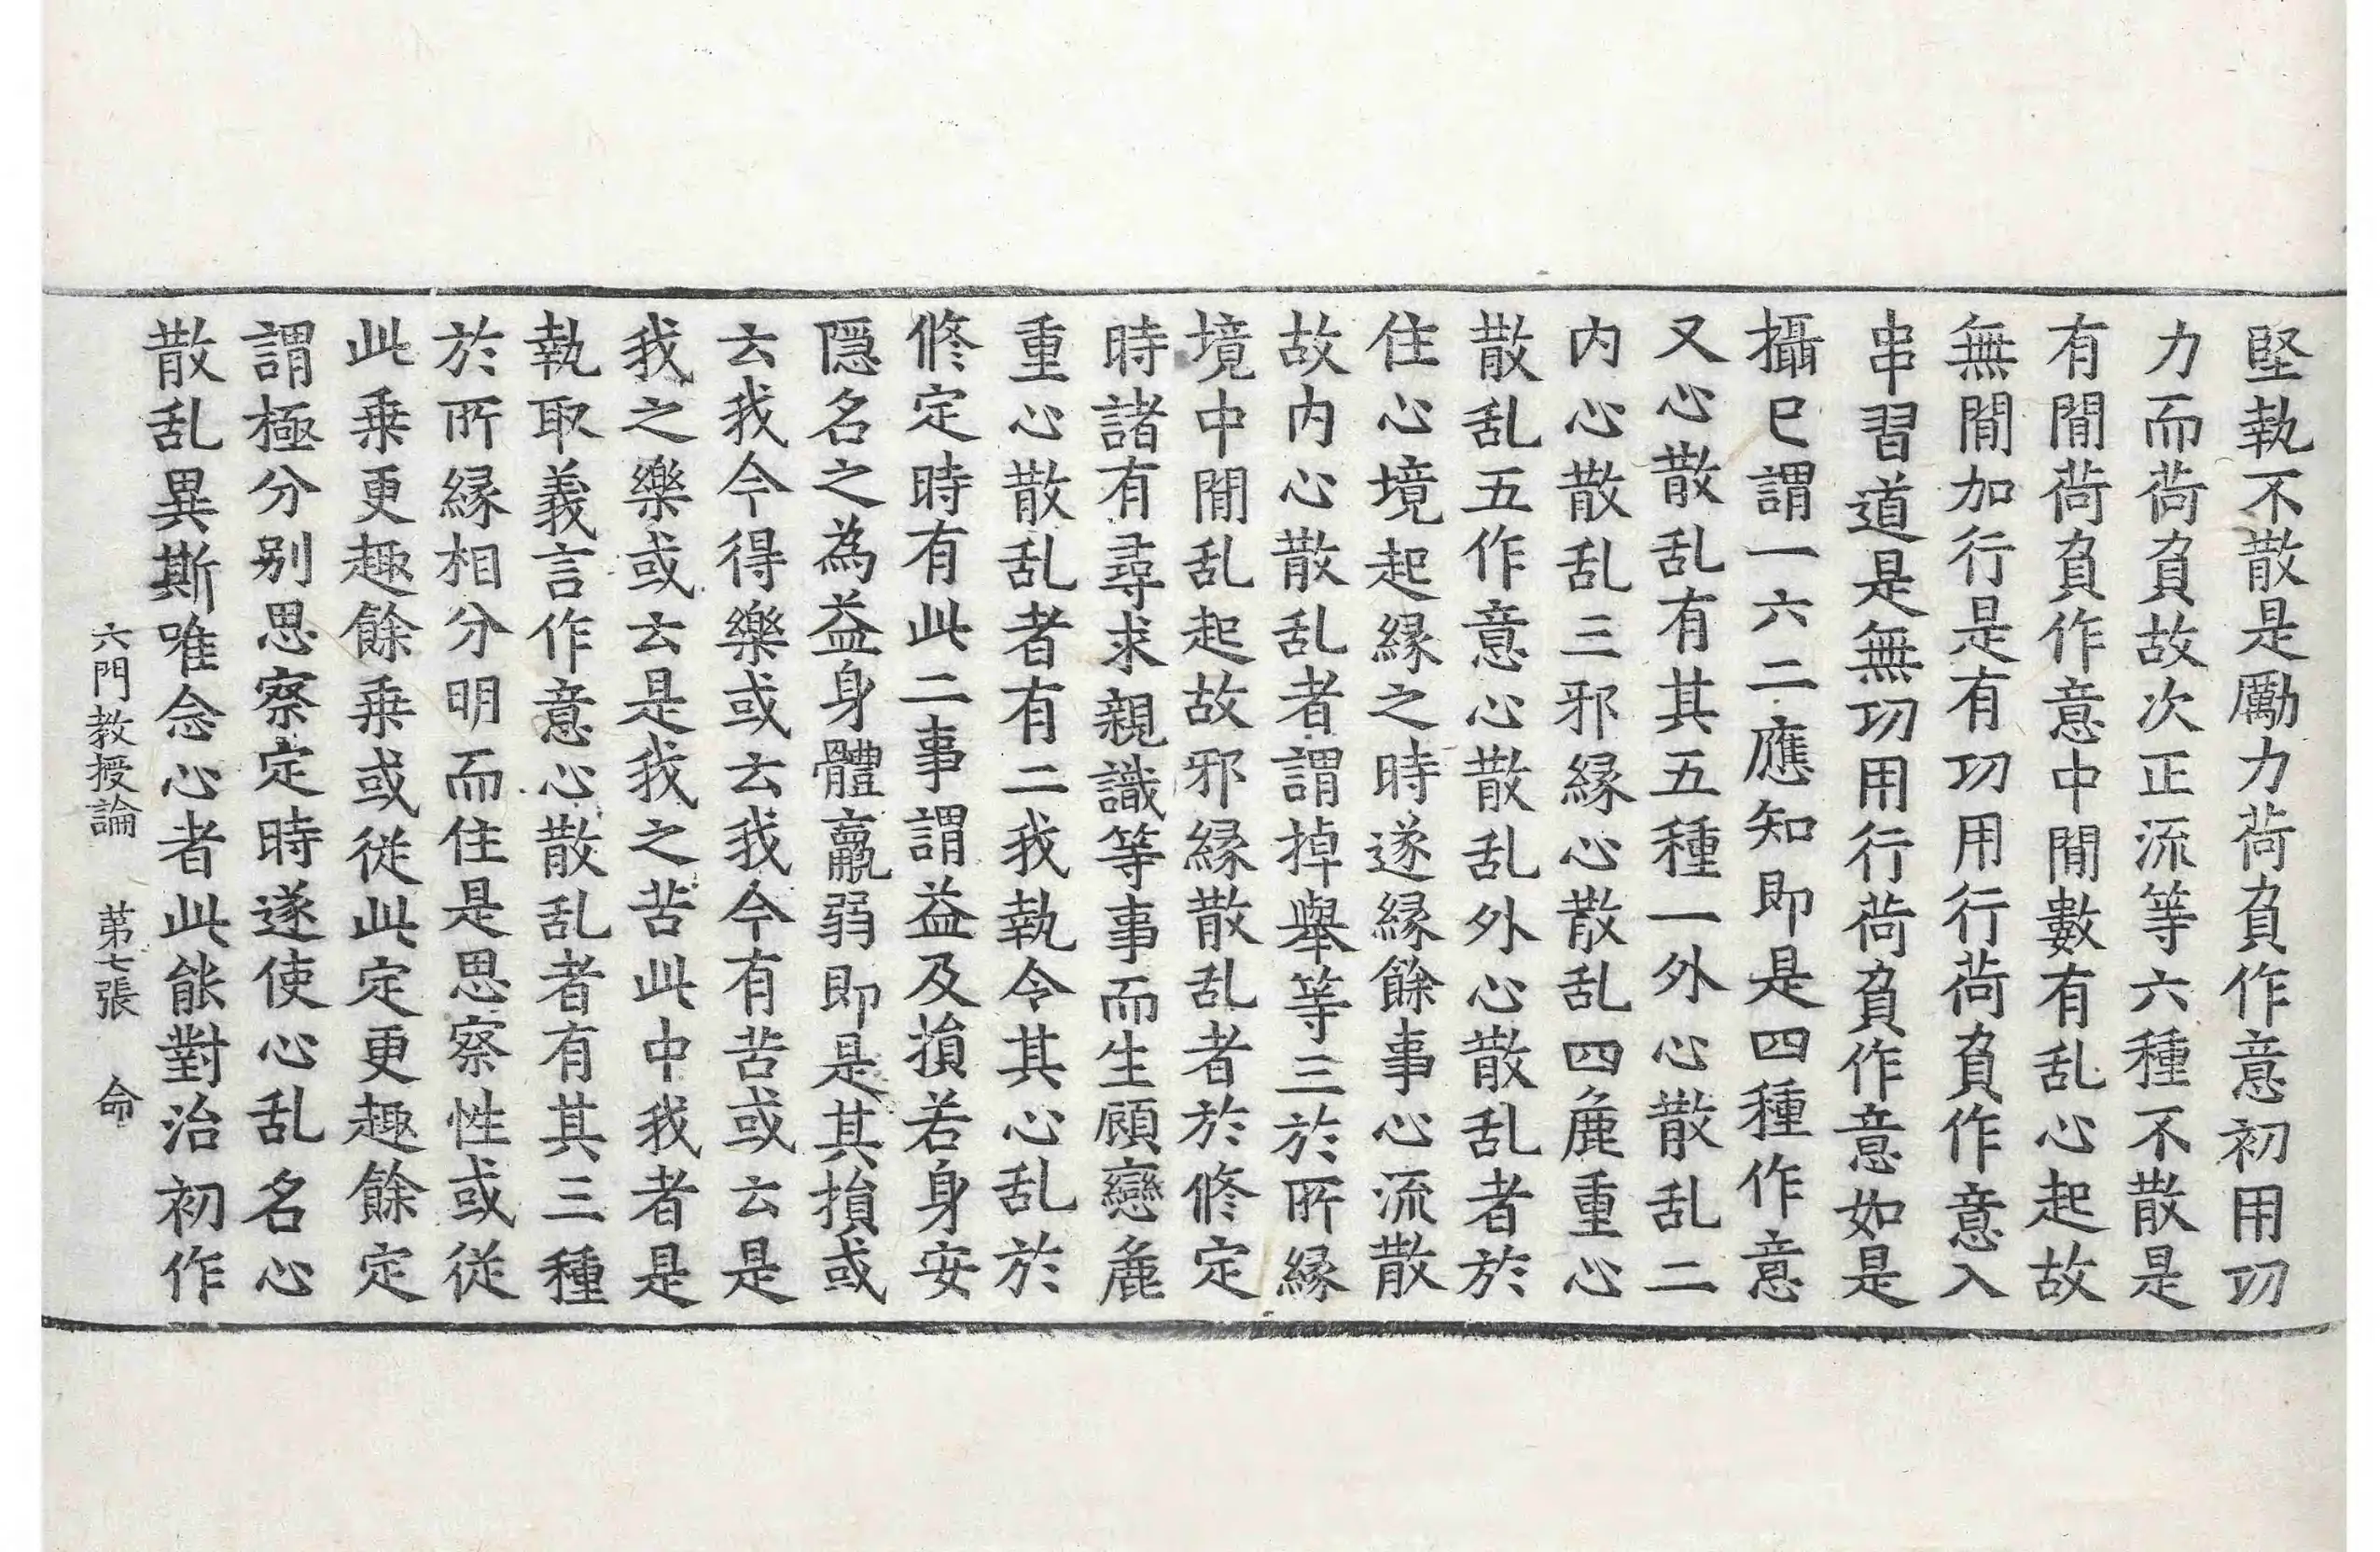 堅執不散是勵力荷負作意初用功
力而荷負故次正流等六種不散是
有間荷負作意中間數有乱心起故
無間加行是有功用行荷負作意入
串習道是無功用行荷負作意如是
攝已謂一六二應知即是四種作意
又心散乱有其五種一外心散乱二
内心散乱三邪縁心散乱四麁重心
散乱五作意心散乱外心散乱者於
住心境起縁之時遂縁餘事心流散
故内心散乱者謂掉舉等三於所縁
境中間乱起故邪縁散乱者於修定
時諸有尋求親識等事而生顧戀麁
重心散乱者有二我執令其心乱於
修定時有此二事謂益及損若身安
隱名之為益身體羸弱即是其損或
云我今得樂或云我今有苦或云是
我之樂或云是我之苦此中我者是
執取義言作意心散乱者有其三種
於所縁相分明而住是思察性或從
此乗更趣餘乗或從此定更趣餘定
謂極分别思察定時遂使心乱名心
散乱異斯唯念心者此能對治初作
六門教授論 苐七張 命